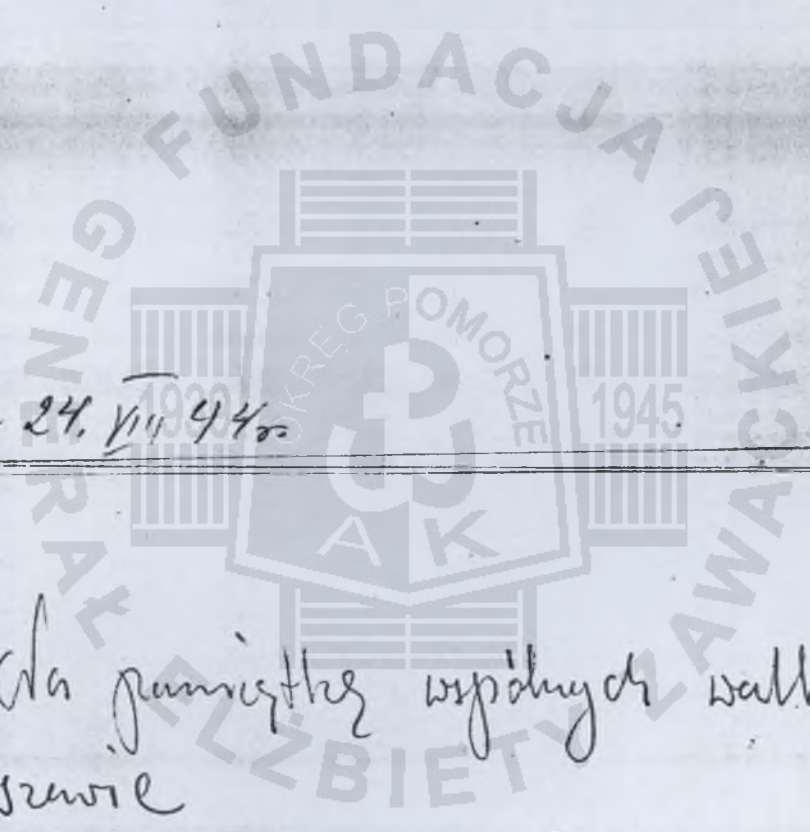 FUNDACJA GENERAŁ ELŻBIETY ZAWACKIEJ
OKRĘG POMORZE
1939 1945
AK
24. VIII 44r
Na pamiątkę wspólnych walk
szewie